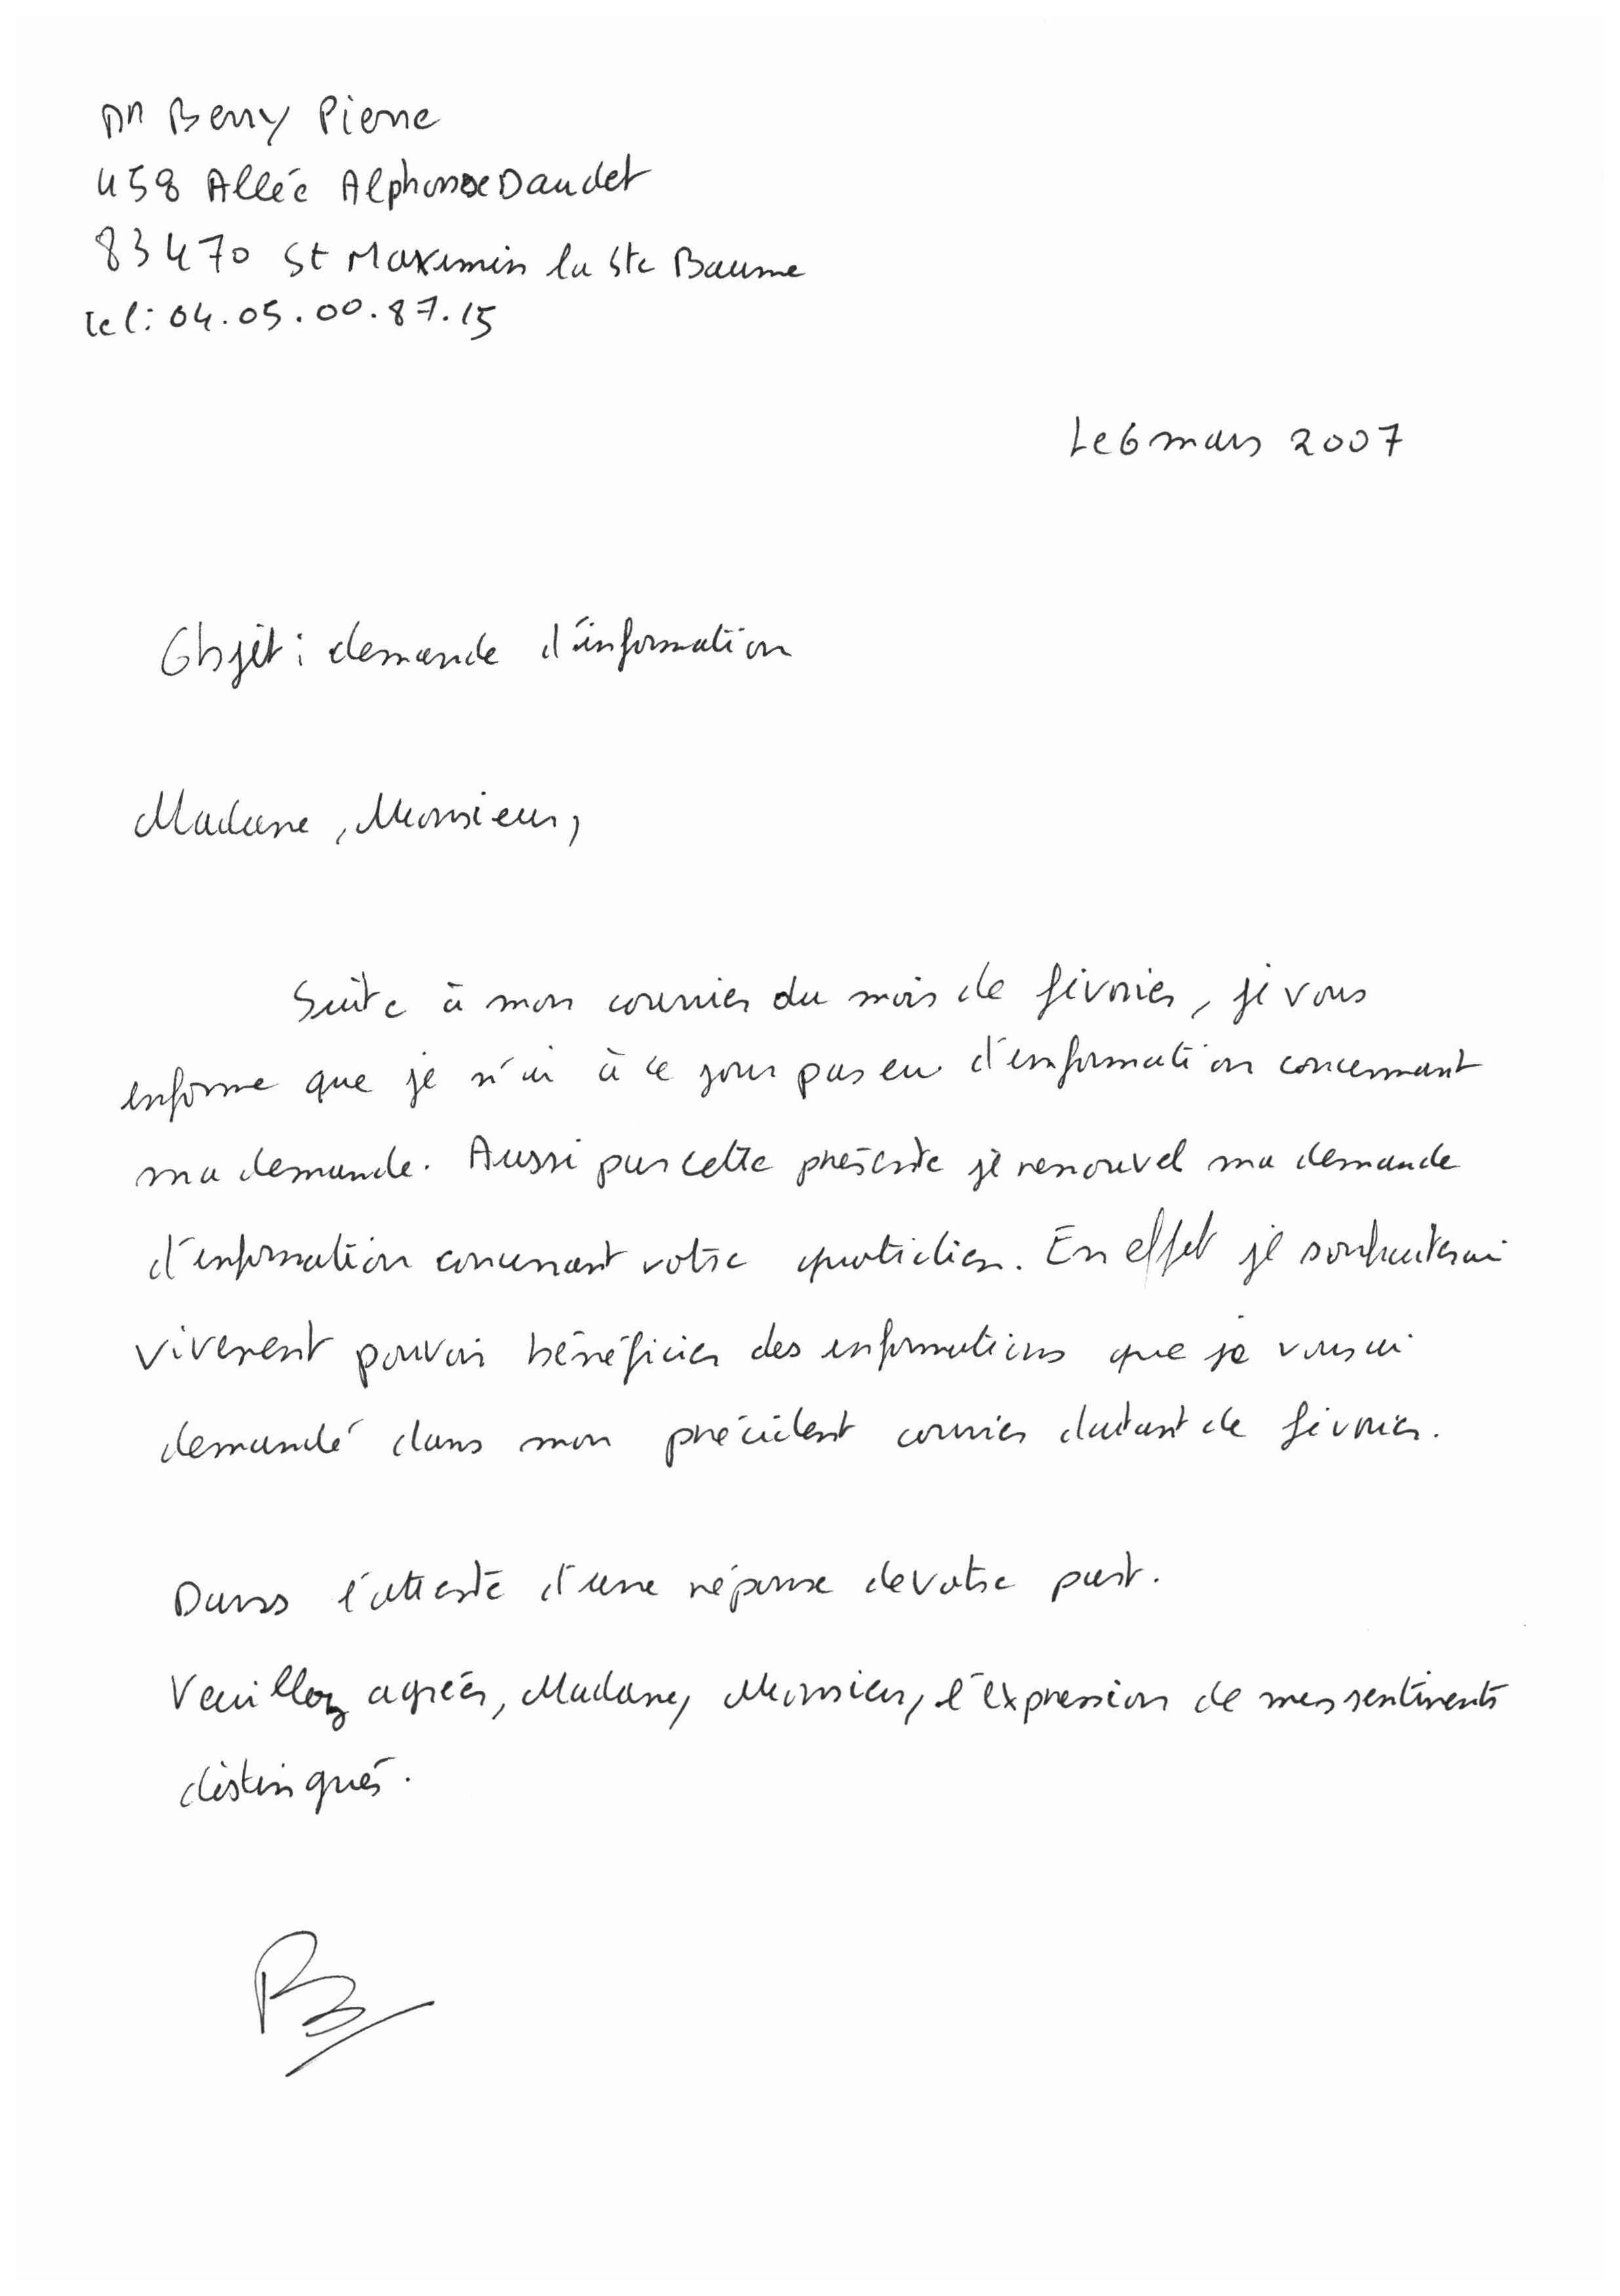 Dr Berry Pierre
458 Allée Alphonse Daudet
83470 St Maximin la Ste Baume
tel: 04.05.00.87.15
Le 6 mars 2007
Objet : demande d'information
Madame, Monsieur,
Suite à mon courrier du mois de février, je vous
informe que je n'ai à ce jour pas eu d'information concernant
ma demande. Aussi par cette présente je renouvel ma demande
d'information concernant votre quotidien. En effet je souhaiterai
vivement pouvoir bénéficier des informations que je vous ai
demandé dans mon précédent courrier datant de février.
Dans l'attente d'une réponse de votre part.
Veuillez agréer, Madame, Monsieur, l'expression de mes sentiments
distingués.